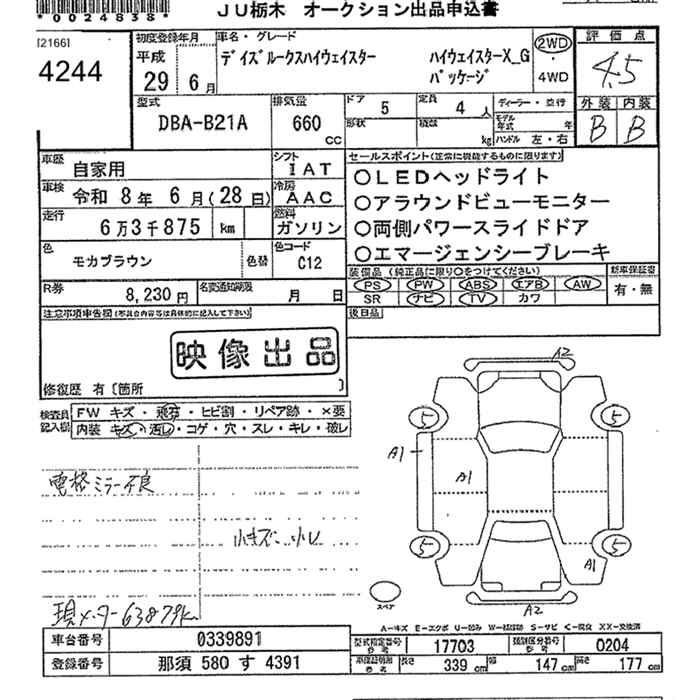 *0024838*
JU栃木 オークション出品申込書
[2166]
4244
初度登録年月
平成
29年 6月
車名・グレード
デイズルークスハイウェイスター ハイウェイスターX_G
パッケージ
2WD
・
4WD
評価点
4.5
外装 内装
B B
型式
DBA-B21A
排気量
660
CC
ドア
5
定員
4人
形状
積載
kg
ディーラー・並行
モデル年式 年
ハンドル 左・右
車歴
自家用
シフト
IAT
車検
令和 8年 6月(28日)
冷房
AAC
走行
6万3千875 km
燃料
ガソリン
色
モカブラウン
色替
色コード
C12
R券
8,230円
名変通知期限
月 日
セールスポイント(正常に機能するものに限ります)
○LEDヘッドライト
○アラウンドビューモニター
○両側パワースライドドア
○エマージェンシーブレーキ
装備品(純正品に限り○をつけてください)
PS PW ABS エアB AW
SR ナビ TV カワ
新車保証書
有・無
後日品
注意事項申告欄(不具合内容等は具体的に記入して下さい)
映像出品
修復歴 有〔箇所 〕
検査員記入欄
FW キズ・飛石・ヒビ割・リペア跡・×要
内装 キズ・汚レ・コゲ・穴・スレ・キレ・破レ
電格ミラー不良
小キズ 小凹
現メーター63879km
A2
5
5
A1
A1
5
5
A1
スペア
A2
A-キズ E-エクボ U-凹み W-補修跡 S-サビ C-腐食 XX-交換済
車台番号 0339891
登録番号 那須 580 す 4391
型式指定番号 参考 17703
類別区分番号 参考 0204
車検証明細 参考 長さ 339cm 幅 147cm 高さ 177cm